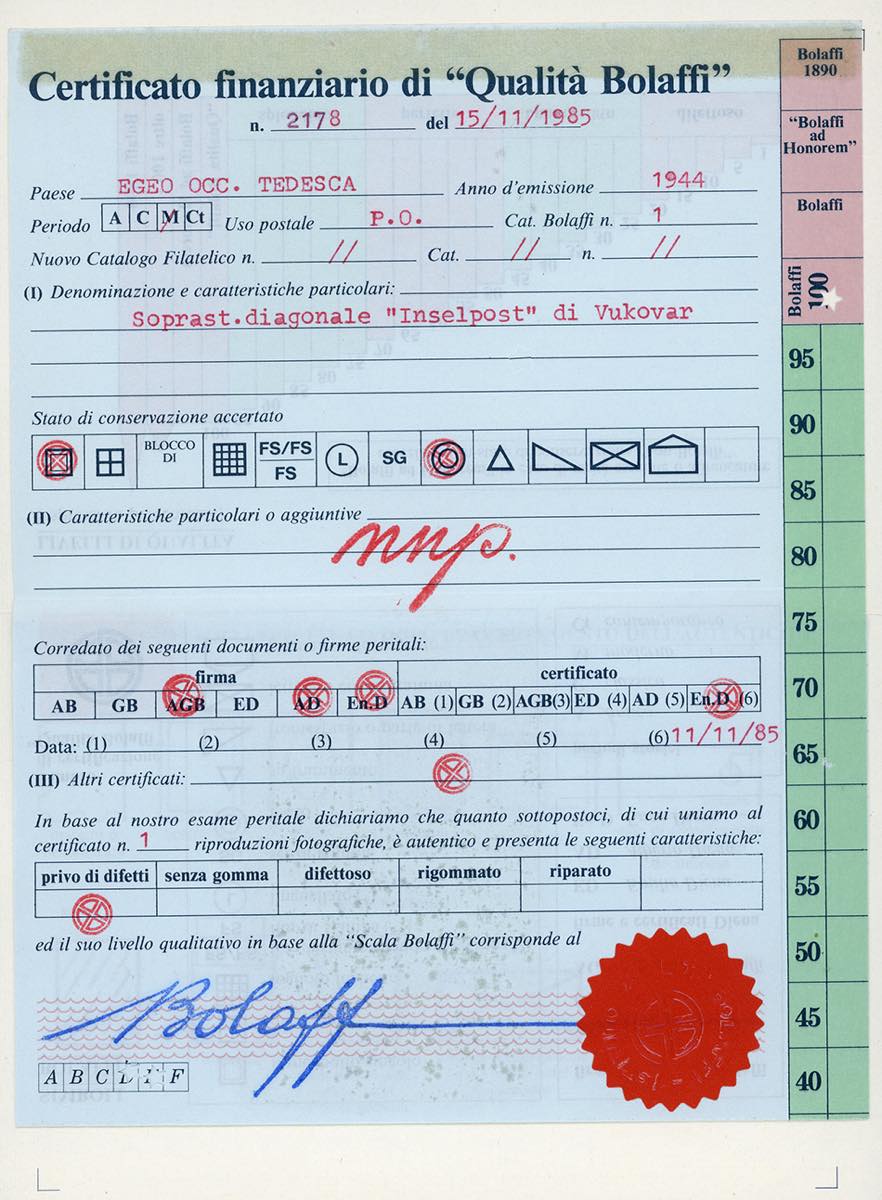 Certificato finanziario di “Qualità Bolaffi”
n. 2178 del 15/11/1985
Paese EGEO OCC. TEDESCA Anno d'emissione 1944
Periodo A C M Ct Uso postale P.O. Cat. Bolaffi n. 1
Nuovo Catalogo Filatelico n. // Cat. // n. //
(I) Denominazione e caratteristiche particolari:
Soprast.diagonale "Inselpost" di Vukovar
Stato di conservazione accertato
BLOCCO DI FS/FS FS L SG
(II) Caratteristiche particolari o aggiuntive
Corredato dei seguenti documenti o firme peritali:
firma certificato
AB GB AGB ED AD En.D AB (1) GB (2) AGB(3) ED (4) AD (5) En.D (6)
Data: (1) (2) (3) (4) (5) (6) 11/11/85
(III) Altri certificati:
In base al nostro esame peritale dichiariamo che quanto sottopostoci, di cui uniamo al
certificato n. 1 riproduzioni fotografiche, è autentico e presenta le seguenti caratteristiche:
privo di difetti senza gomma difettoso rigommato riparato
ed il suo livello qualitativo in base alla “Scala Bolaffi” corrisponde al
Bolaffi
A B C F
Bolaffi
1890
“Bolaffi
ad
Honorem”
Bolaffi
Bolaffi
100
95
90
85
80
75
70
65
60
55
50
45
40